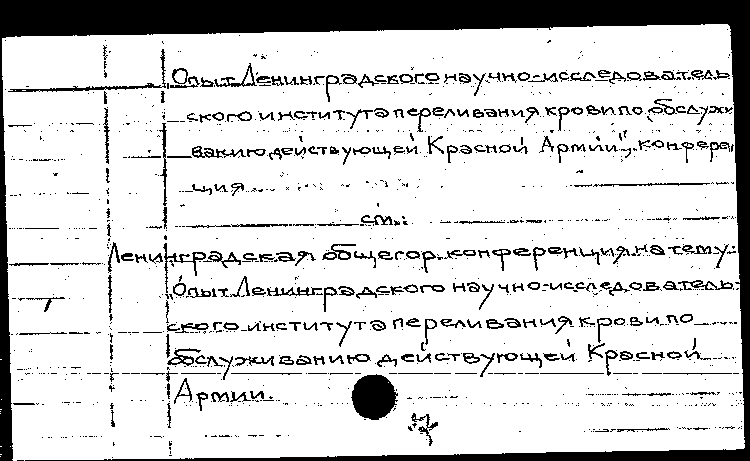 Опыт Ленинградского научно-исследователь
ского института переливания крови по обслужи
ванию действующей Красной Армии", конферен
ция
см.:
Ленинградская общегор. конференция на тему:
Опыт Ленинградского научно-исследователь-
ского института переливания крови по
обслуживанию действующей Красной
Армии.